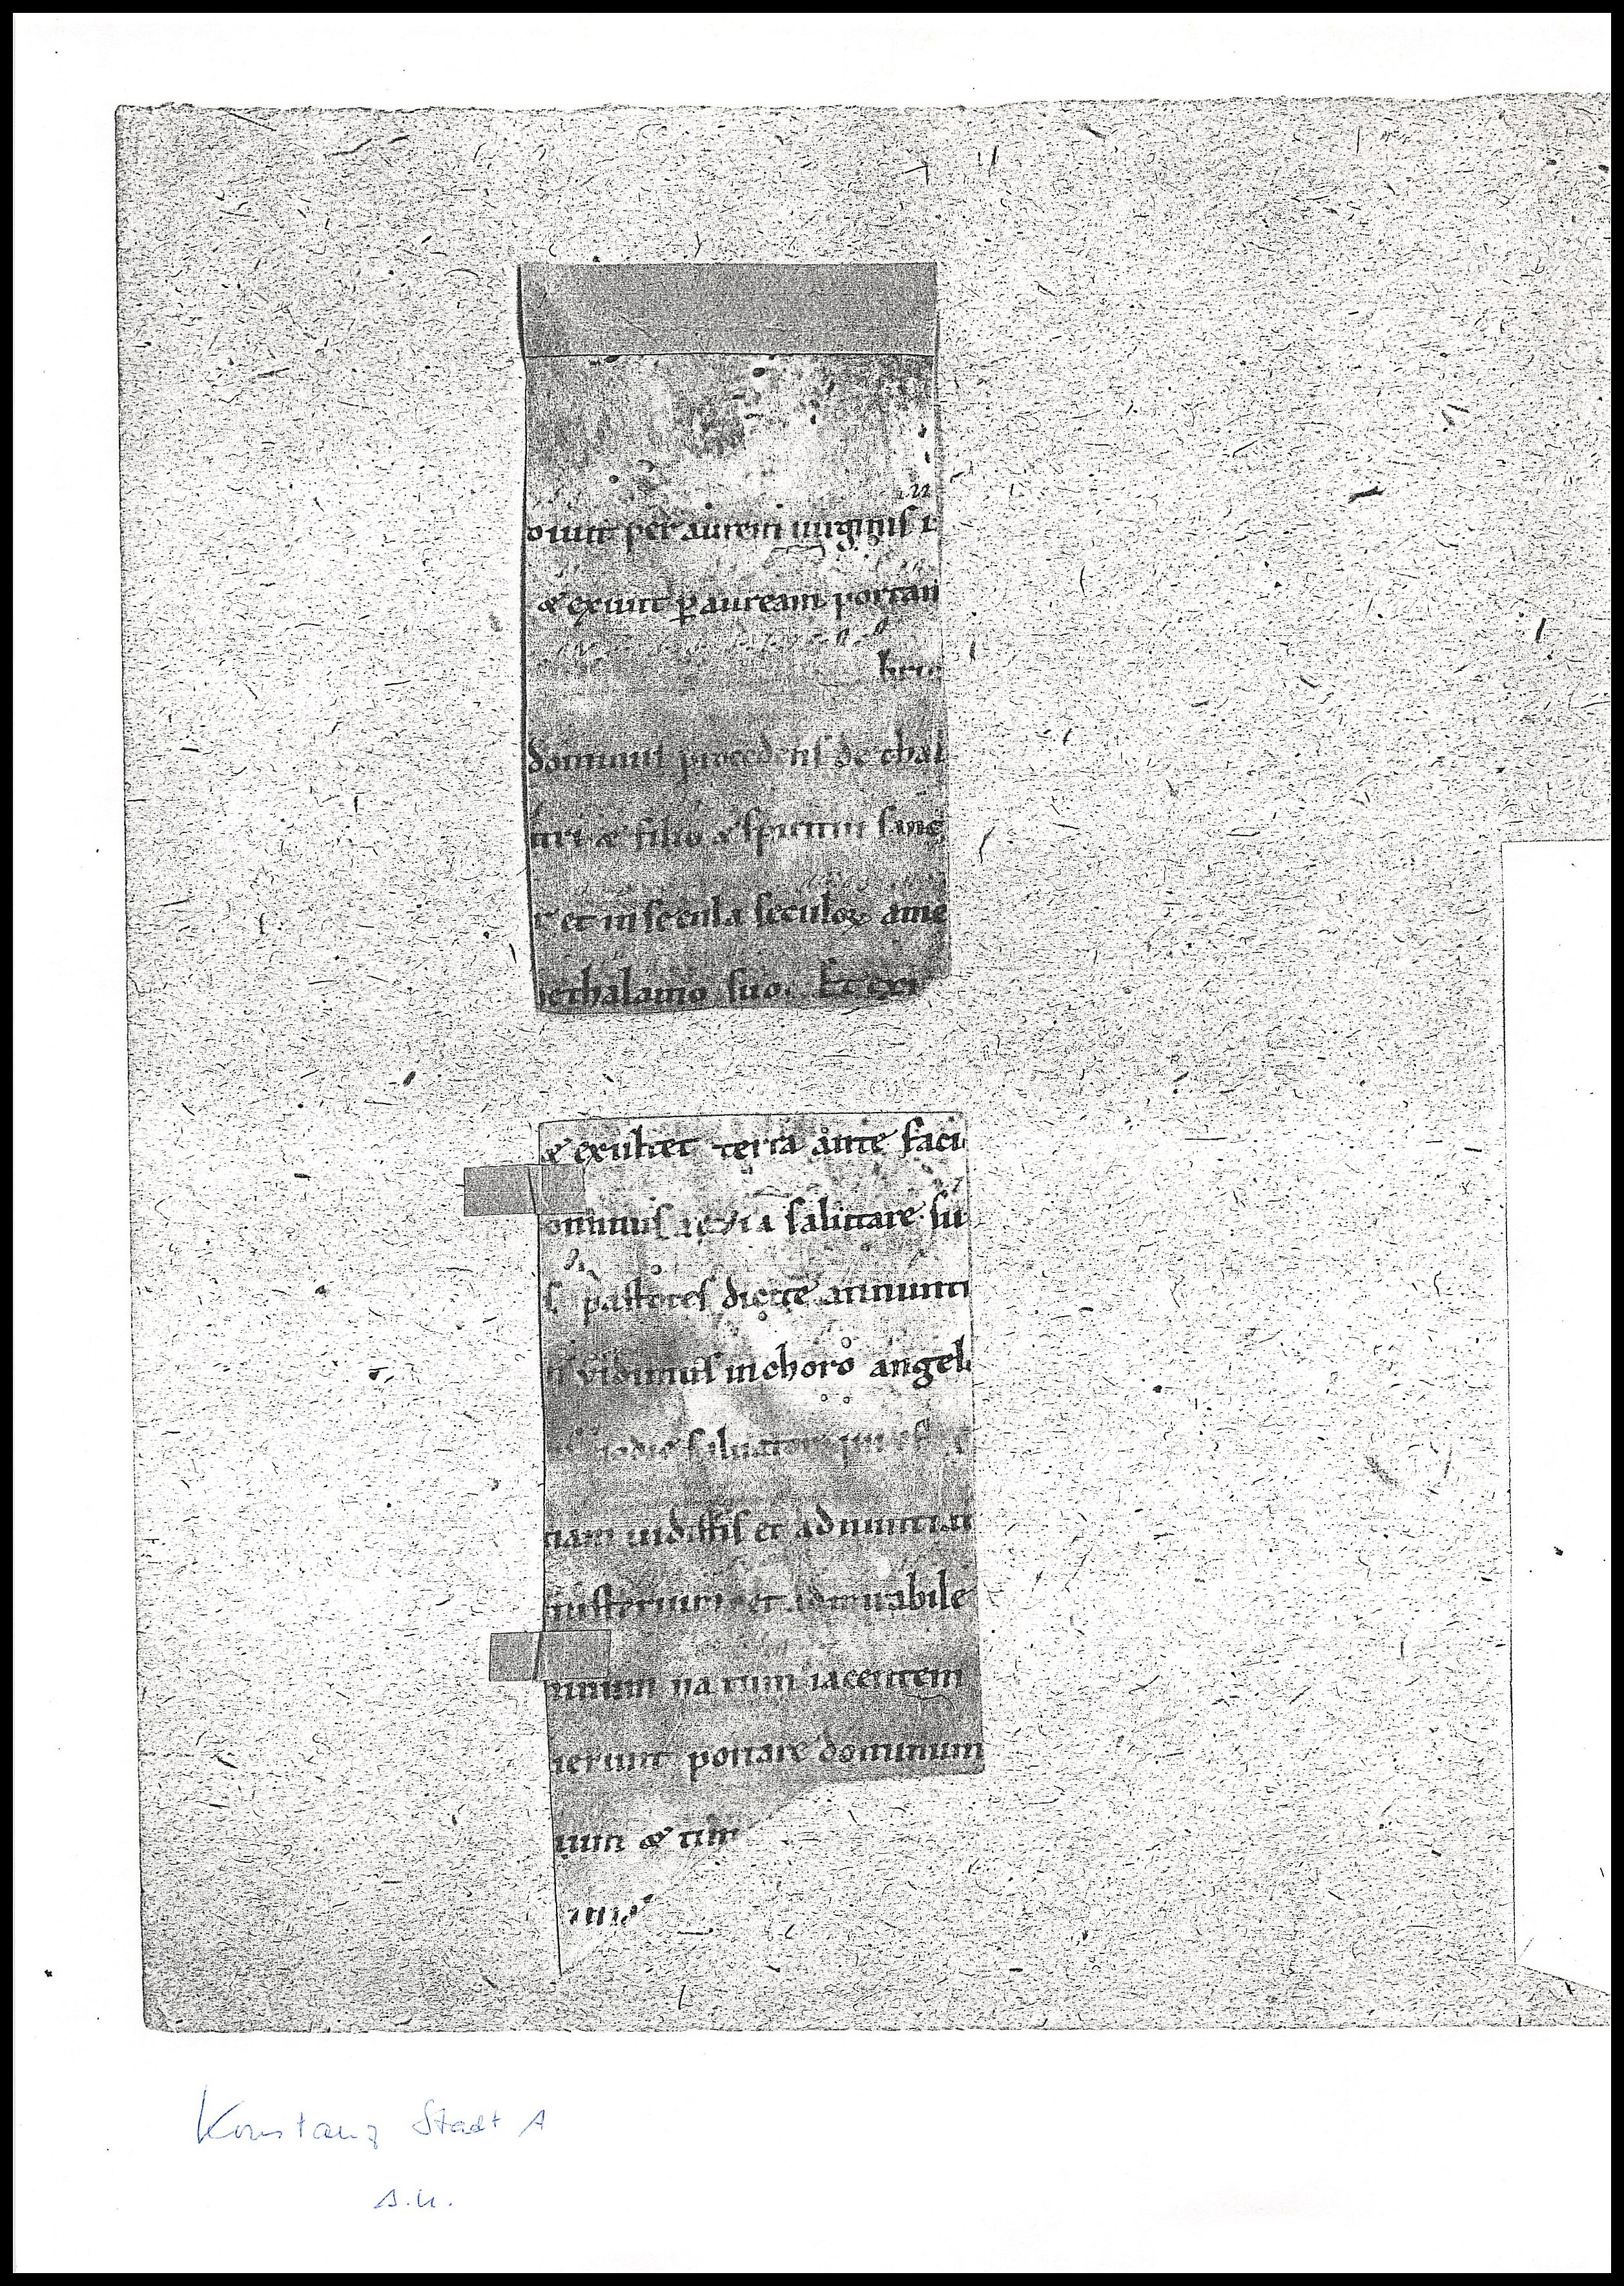 oiuit per aurem uirginis i
& exiuit p auream portam
bric
dominus procedens de thal
tri & filio & spiritui sanc
r et in secula seculoꝝ ame
de thalamo suo. Et exi
& exultet terra ante faci
ominus salutare su
s pastores dicite annunti
vidimus in choro angel
odie saluatorem
nam uidistis et adnuntiat
misterium et admirabile
minum natum iacentem
ruerunt portare dominum
ium & tim
Konstanz Stadt A
s.n.